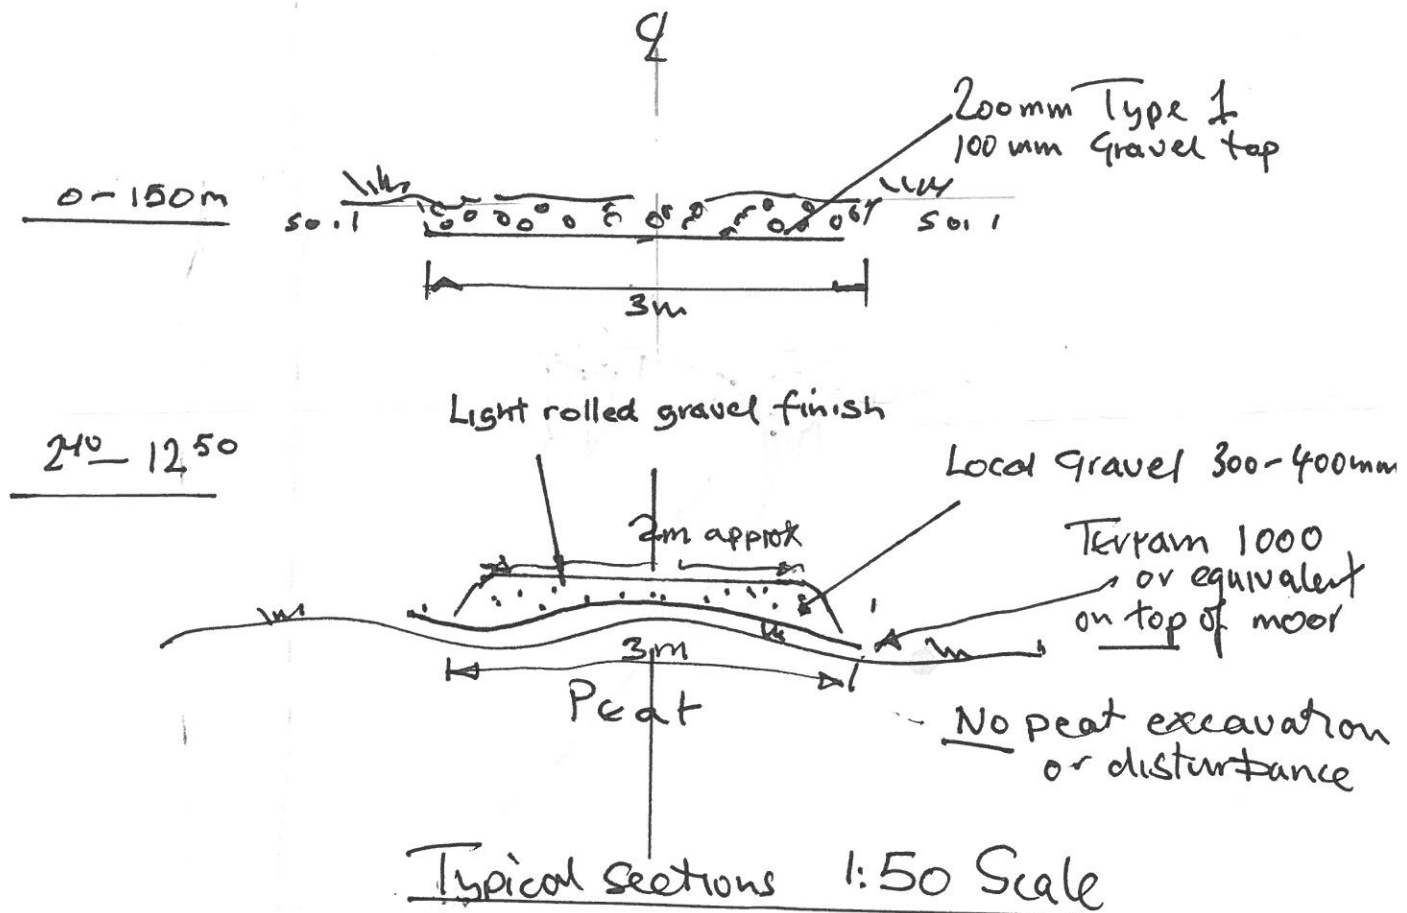 ℄
200mm Type 1
100mm Gravel top
0-150m
Soil
Soil
3m
Light rolled gravel finish
240-1250
Local Gravel 300-400mm
2m approx
Terram 1000
or equivalent
on top of moor
3m
Peat
No peat excavation
or disturbance
Typical Sections 1:50 Scale